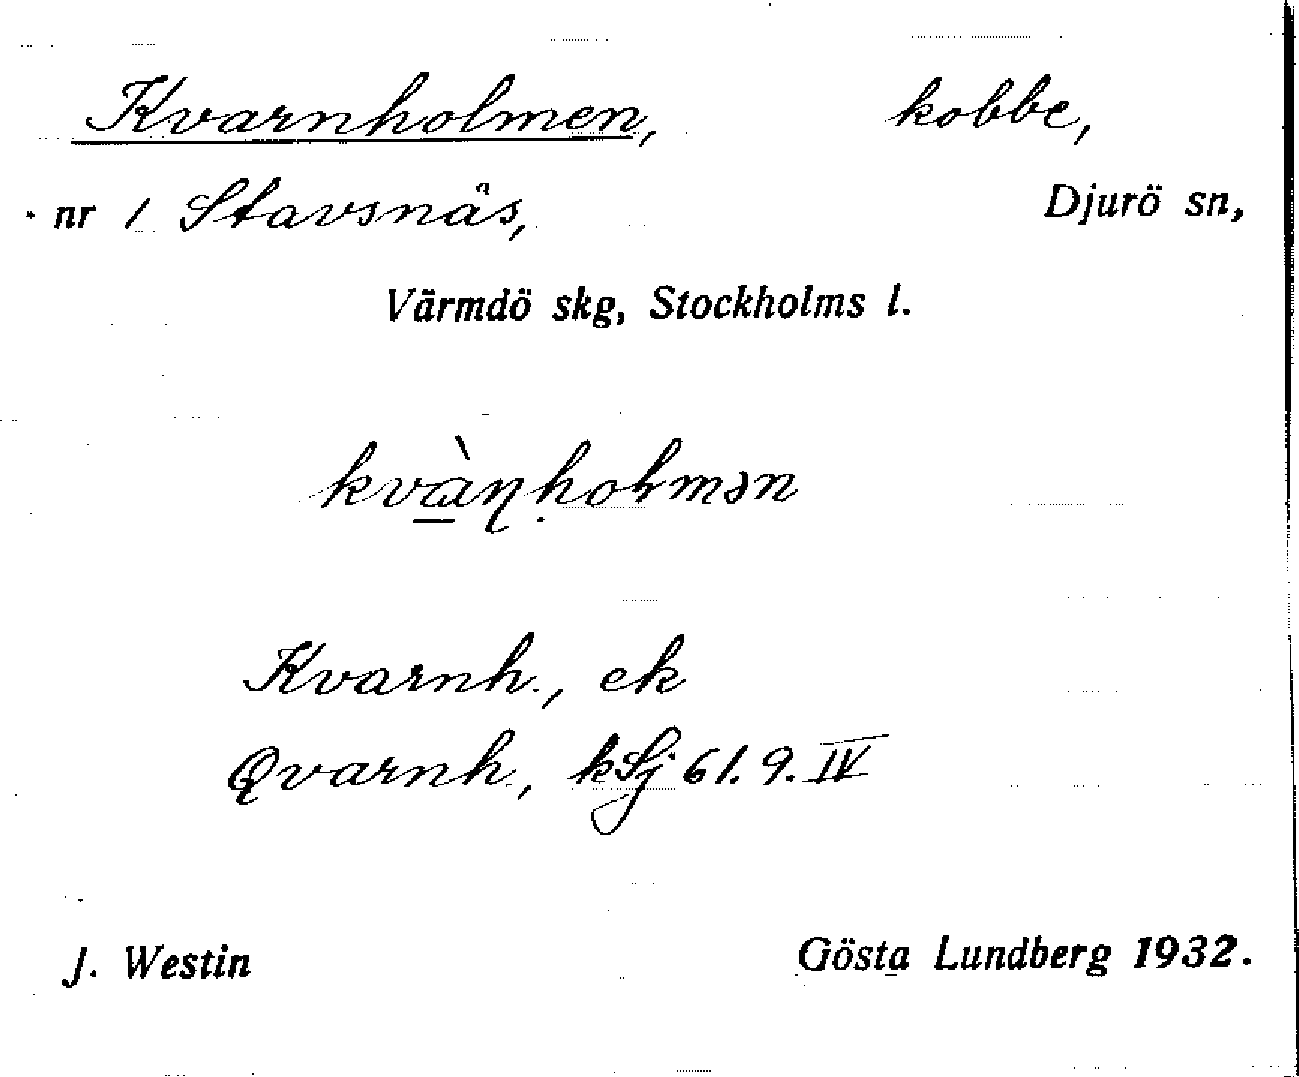 Kvarnholmen, kobbe,
nr 1 Stavsnäs, Djurö sn,
Värmdö skg, Stockholms l.
Kvarnh., ek
Qvarnh., kSj 61. 9. IV
J. Westin Gösta Lundberg 1932.